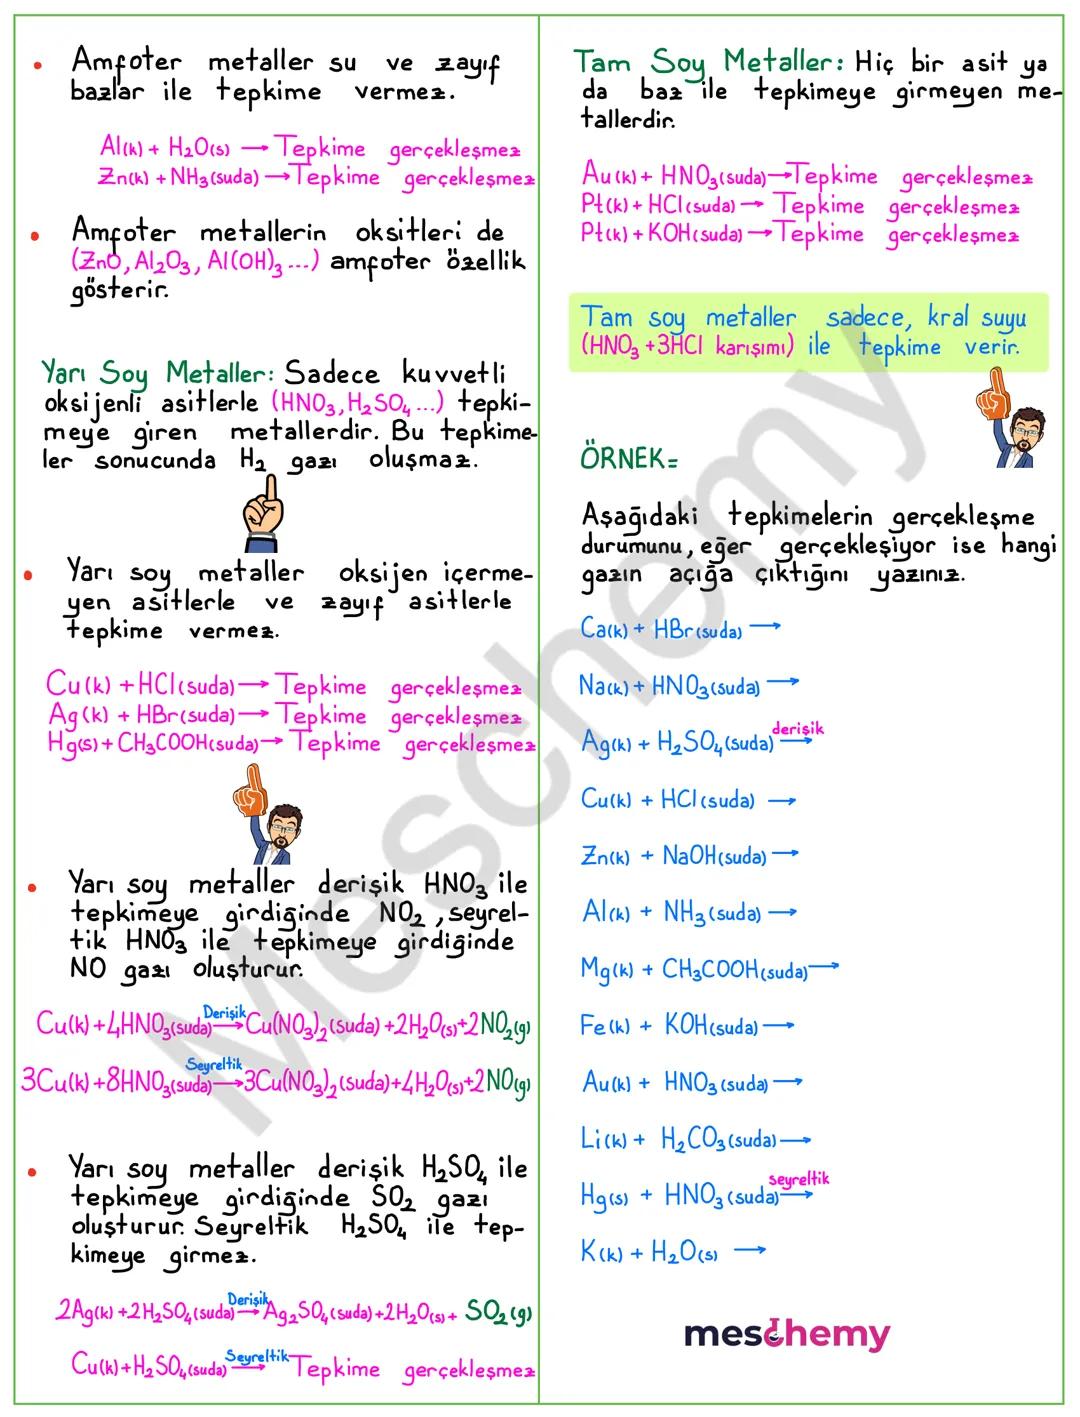 • Amfoter metaller su ve zayıf
bazlar ile tepkime vermez.
Al(k) + H₂O(s) → Tepkime gerçekleşmez
Zn(k) + NH₃(suda) → Tepkime gerçekleşmez
• Amfoter metallerin oksitleri de
(ZnO, Al₂O₃, Al(OH)₃ ...) amfoter özellik
gösterir.
Yarı Soy Metaller: Sadece kuvvetli
oksijenli asitlerle (HNO₃, H₂SO₄ ...) tepki-
meye giren metallerdir. Bu tepkime-
ler sonucunda H₂ gazı oluşmaz.
• Yarı soy metaller oksijen içerme-
yen asitlerle ve zayıf asitlerle
tepkime vermez.
Cu(k) + HCl(suda) → Tepkime gerçekleşmez
Ag(k) + HBr(suda) → Tepkime gerçekleşmez
Hg(s) + CH₃COOH(suda) → Tepkime gerçekleşmez
• Yarı soy metaller derişik HNO₃ ile
tepkimeye girdiğinde NO₂, seyrel-
tik HNO₃ ile tepkimeye girdiğinde
NO gazı oluşturur.
Cu(k) + 4HNO₃(suda) Derişik→ Cu(NO₃)₂(suda) + 2H₂O(s) + 2NO₂(g)
3Cu(k) + 8HNO₃(suda) Seyreltik→ 3Cu(NO₃)₂(suda) + 4H₂O(s) + 2NO(g)
• Yarı soy metaller derişik H₂SO₄ ile
tepkimeye girdiğinde SO₂ gazı
oluşturur. Seyreltik H₂SO₄ ile tep-
kimeye girmez.
2Ag(k) + 2H₂SO₄(suda) Derişik→ Ag₂SO₄(suda) + 2H₂O(s) + SO₂(g)
Cu(k) + H₂SO₄(suda) Seyreltik→ Tepkime gerçekleşmez
Tam Soy Metaller: Hiç bir asit ya
da baz ile tepkimeye girmeyen me-
tallerdir.
Au(k) + HNO₃(suda) → Tepkime gerçekleşmez
Pt(k) + HCl(suda) → Tepkime gerçekleşmez
Pt(k) + KOH(suda) → Tepkime gerçekleşmez
Tam soy metaller sadece, kral suyu
(HNO₃ + 3HCl karışımı) ile tepkime verir.
ÖRNEK=
Aşağıdaki tepkimelerin gerçekleşme
durumunu, eğer gerçekleşiyor ise hangi
gazın açığa çıktığını yazınız.
Ca(k) + HBr(suda) →
Na(k) + HNO₃(suda) →
Ag(k) + H₂SO₄(suda) derişik→
Cu(k) + HCl(suda) →
Zn(k) + NaOH(suda) →
Al(k) + NH₃(suda) →
Mg(k) + CH₃COOH(suda) →
Fe(k) + KOH(suda) →
Au(k) + HNO₃(suda) →
Li(k) + H₂CO₃(suda) →
Hg(s) + HNO₃(suda) seyreltik→
K(k) + H₂O(s) →
meschemy
Meschemy